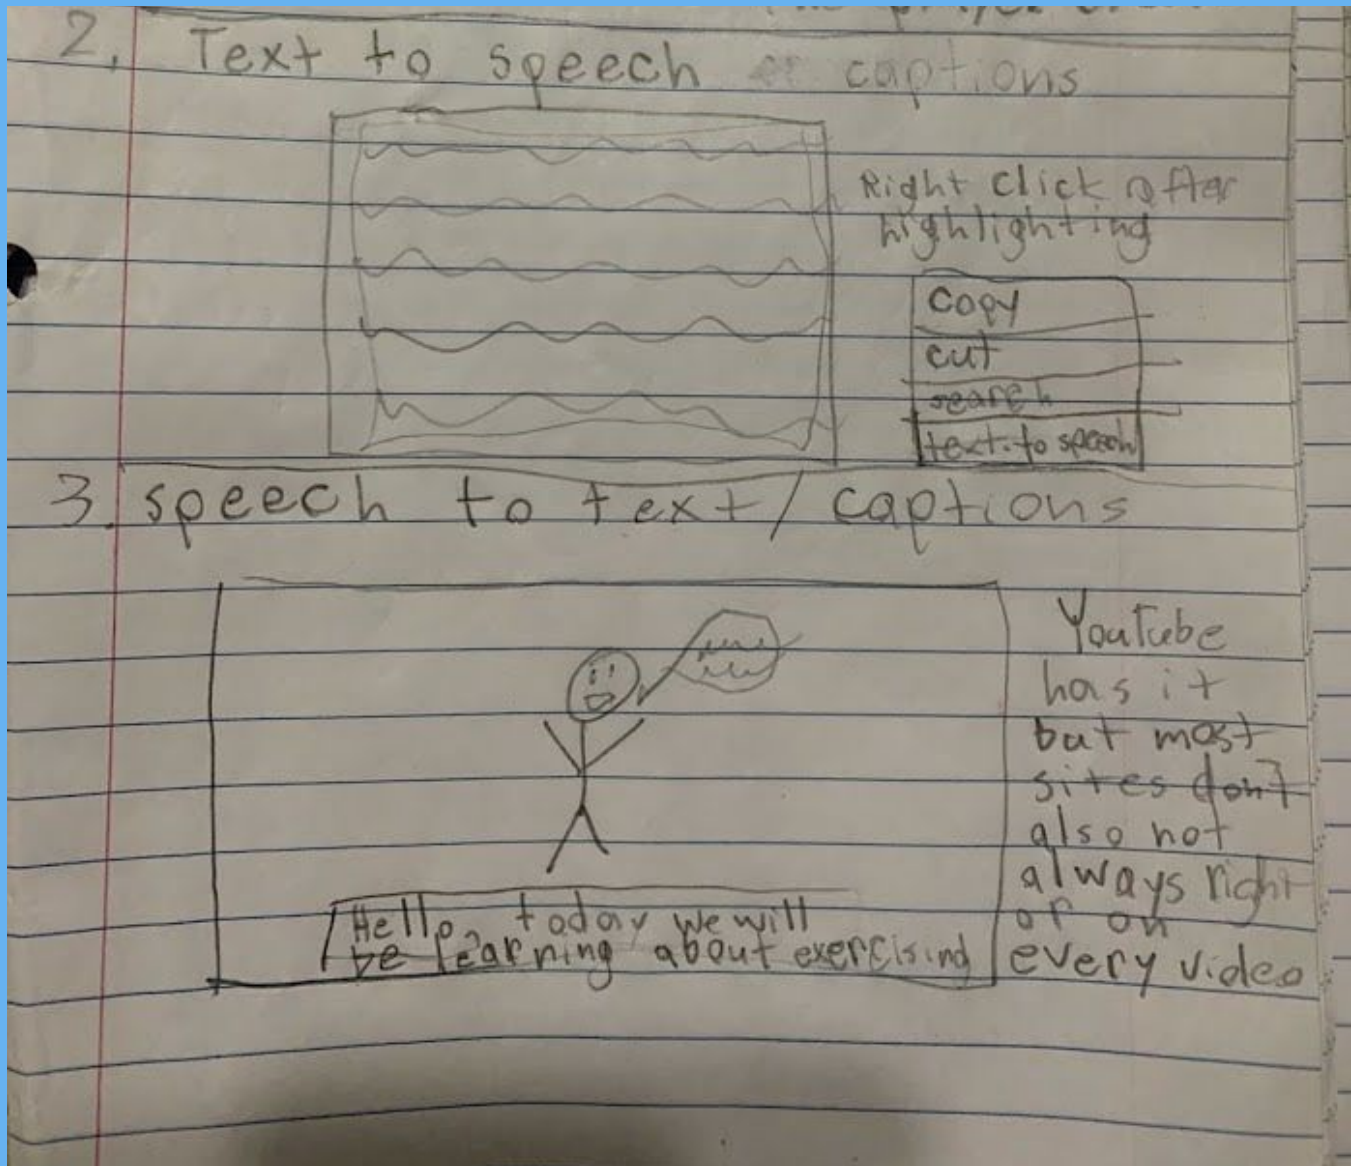 2. Text to speech or captions
Right click after
highlighting
copy
cut
search
text-to speech
3. speech to text/captions
YouTube
has it
but most
sites don't
also not
always right
or on
every video
Hello, today we will
be learning about exercising